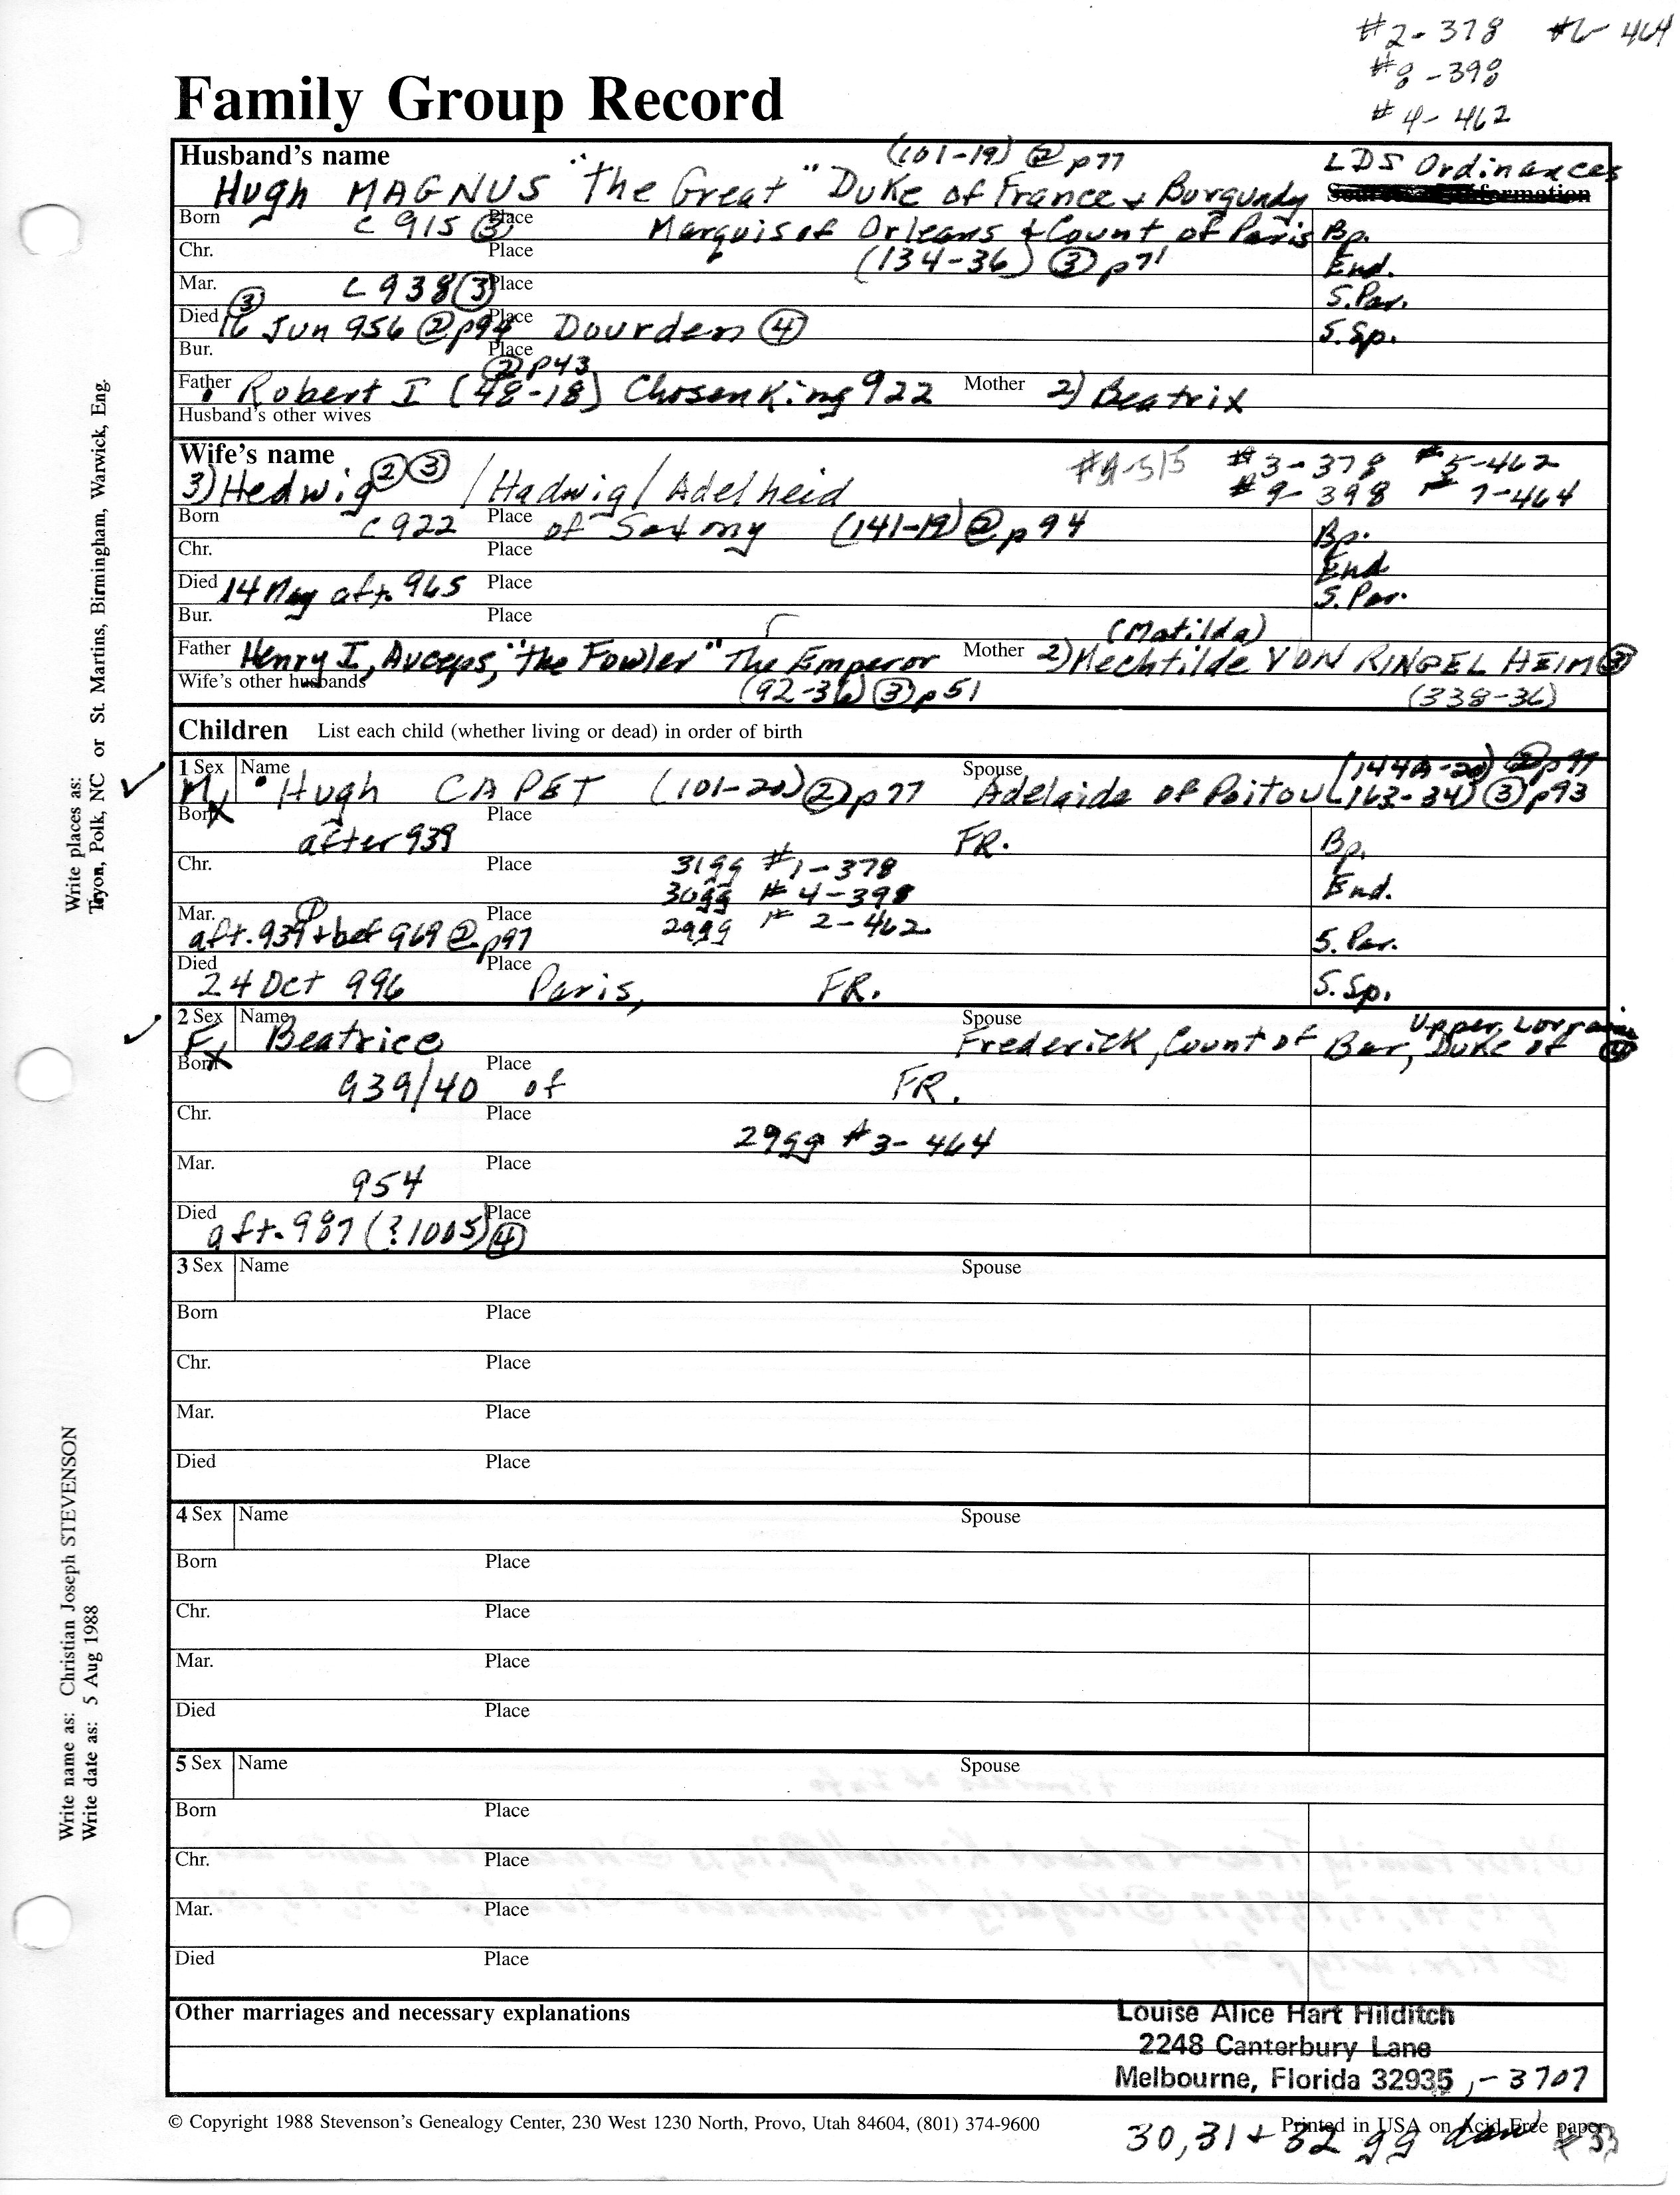 #2-378 #6-464
#8-398
#4-462
Family Group Record
Husband's name (101-19) ② p77 LDS Ordinances
Hugh MAGNUS "The Great" Duke of France & Burgundy
Born c 915 ③ Place Marquis of Orleans & Count of Paris Bp.
Chr. Place (134-36) ③ p71 End.
Mar. c 938 ③ Place S. Par.
Died ③ 16 Jun 956 ② p94 Place Dourden ④ S. Sp.
Bur. Place
② p43
Father Robert I (48-18) Chosen King 922 Mother 2) Beatrix
Husband's other wives
Wife's name #3-378 #5-462
3) Hedwig ② ③ / Hadwig / Adelheid #9-398 #7-464
Born c 922 Place of Saxony (141-19) ② p 94 Bp.
Chr. Place End
Died 14 May aft. 965 Place S. Par.
Bur. Place
(Matilda)
Father Henry I, Auceps, "the Fowler" The Emperor Mother 2) Mechtilde VON RINGELHEIM ③
Wife's other husbands (92-36) ③ p 51 (338-36)
Children List each child (whether living or dead) in order of birth
1 Sex Name Spouse (144A-20) ② p97
M Hugh CAPET (101-20) ② p77 Adelaide of Poitou (163-34) ③ p93
Born X after 939 Place FR. Bp.
Chr. Place 31gg #1-378 End.
30gg #4-398
Mar. ① aft. 939 + bef 969 ② p97 Place 29gg # 2-462 S. Par.
Died 24 Oct 996 Place Paris, FR. S. Sp.
2 Sex Name Spouse Upper Lorraine
F Beatrice Frederick, Count of Bar, Duke of ④
Born X 939/40 Place of FR.
Chr. Place
29gg #3-464
Mar. 954 Place
Died aft. 987 (?1005) ④ Place
3 Sex Name Spouse
Born Place
Chr. Place
Mar. Place
Died Place
4 Sex Name Spouse
Born Place
Chr. Place
Mar. Place
Died Place
5 Sex Name Spouse
Born Place
Chr. Place
Mar. Place
Died Place
Other marriages and necessary explanations
Louise Alice Hart Hilditch
2248 Canterbury Lane
Melbourne, Florida 32935, -3707
© Copyright 1988 Stevenson's Genealogy Center, 230 West 1230 North, Provo, Utah 84604, (801) 374-9600 Printed in USA on Acid Free paper
30, 31 + 32 gg #33
Write places as:
Tryon, Polk, NC or St. Martins, Birmingham, Warwick, Eng.
Write name as: Christian Joseph STEVENSON
Write date as: 5 Aug 1988